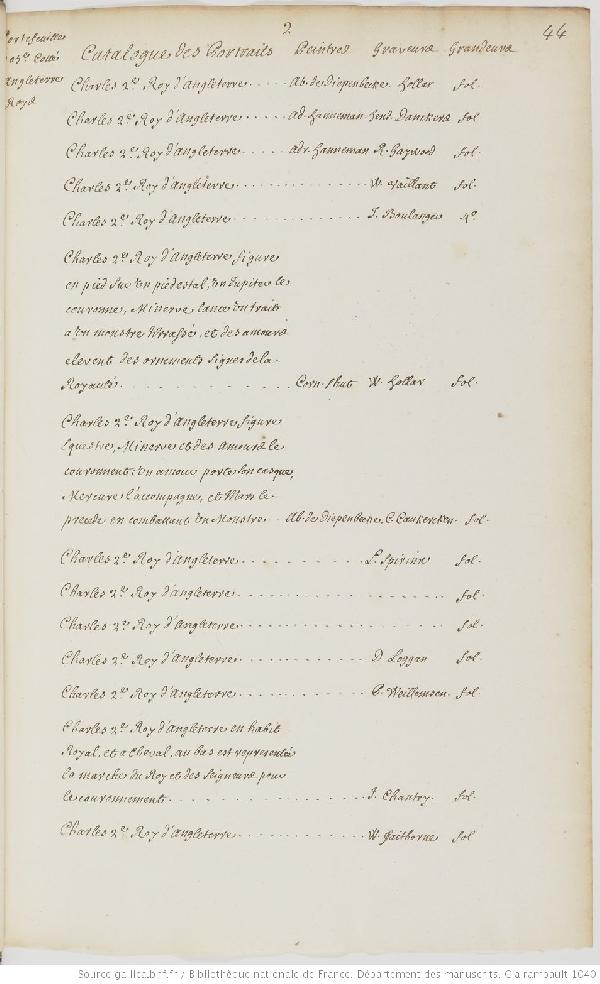 2
44
Portefeuille
Angleterre
Roys
Catalogue des Portraits Peintres Graveurs Grandeurs
Charles 2ᵈ. Roy d'Angleterre ........ Ab. de Diepenbeke Hollar fol.
Charles 2ᵈ. Roy d'Angleterre ..... ad. Hanneman Hend. Danckers fol
Charles 2ᵈ. Roy d'Angleterre ..... adr. Hanneman R. Gaywood fol.
Charles 2ᵈ. Roy d'Angleterre ............ W. Vaillant fol.
Charles 2ᵈ. Roy d'Angleterre ............ J. Boulanger 4º
Charles 2ᵈ. Roy d'Angleterre, figure
en pied sur un piedestal, un Jupiter le
couronne, Minerve lance un trait
a un monstre terrassé, et des amours
elevent des ornements signes de la
Royauté .................... Corn. Shut W. Hollar fol.
Charles 2ᵈ. Roy d'Angleterre, figure
Equestre, Minerve et des Amours le
couronnent, un amour porte son casque,
Mercure l'accompagne, et Mars le
precede en combattant un Monstre .. Ab. de Diepenbeke C. Caukercken fol.
Charles 2ᵈ. Roy d'Angleterre .......... L. Spirinx fol.
Charles 2ᵈ. Roy d'Angleterre .................... fol.
Charles 2ᵈ. Roy d'Angleterre .................... fol.
Charles 2ᵈ. Roy d'Angleterre ............ D Loggan fol.
Charles 2ᵈ. Roy d'Angleterre ............ P. Weillemsen fol.
Charles 2ᵈ. Roy d'Angleterre en habit
Royal, et a cheval, au bas est representée
la marche du Roy et des Seigneurs pour
le couronnement .................. J. Chantry fol.
Charles 2ᵈ. Roy d'Angleterre ............ W. Faithorne fol
Source gallica.bnf.fr / Bibliothèque nationale de France. Département des manuscrits. Clairambault 1040